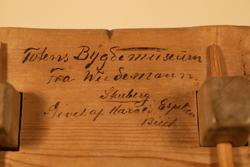 Totens Bygdemuseum
Fra Wiedemann.
Skuberg
Givet af Harald